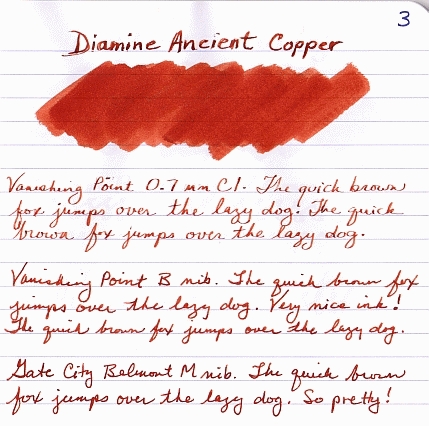 3
Diamine Ancient Copper
Vanishing Point 0.7 mm C.I. The quick brown
fox jumps over the lazy dog! The quick
brown fox jumps over the lazy dog.
Vanishing Point B nib. The quick brown fox
jumps over the lazy dog. Very nice ink!
The quick brown fox jumps over the lazy dog.
Gate City Belmont M nib. The quick brown
fox jumps over the lazy dog. So pretty!